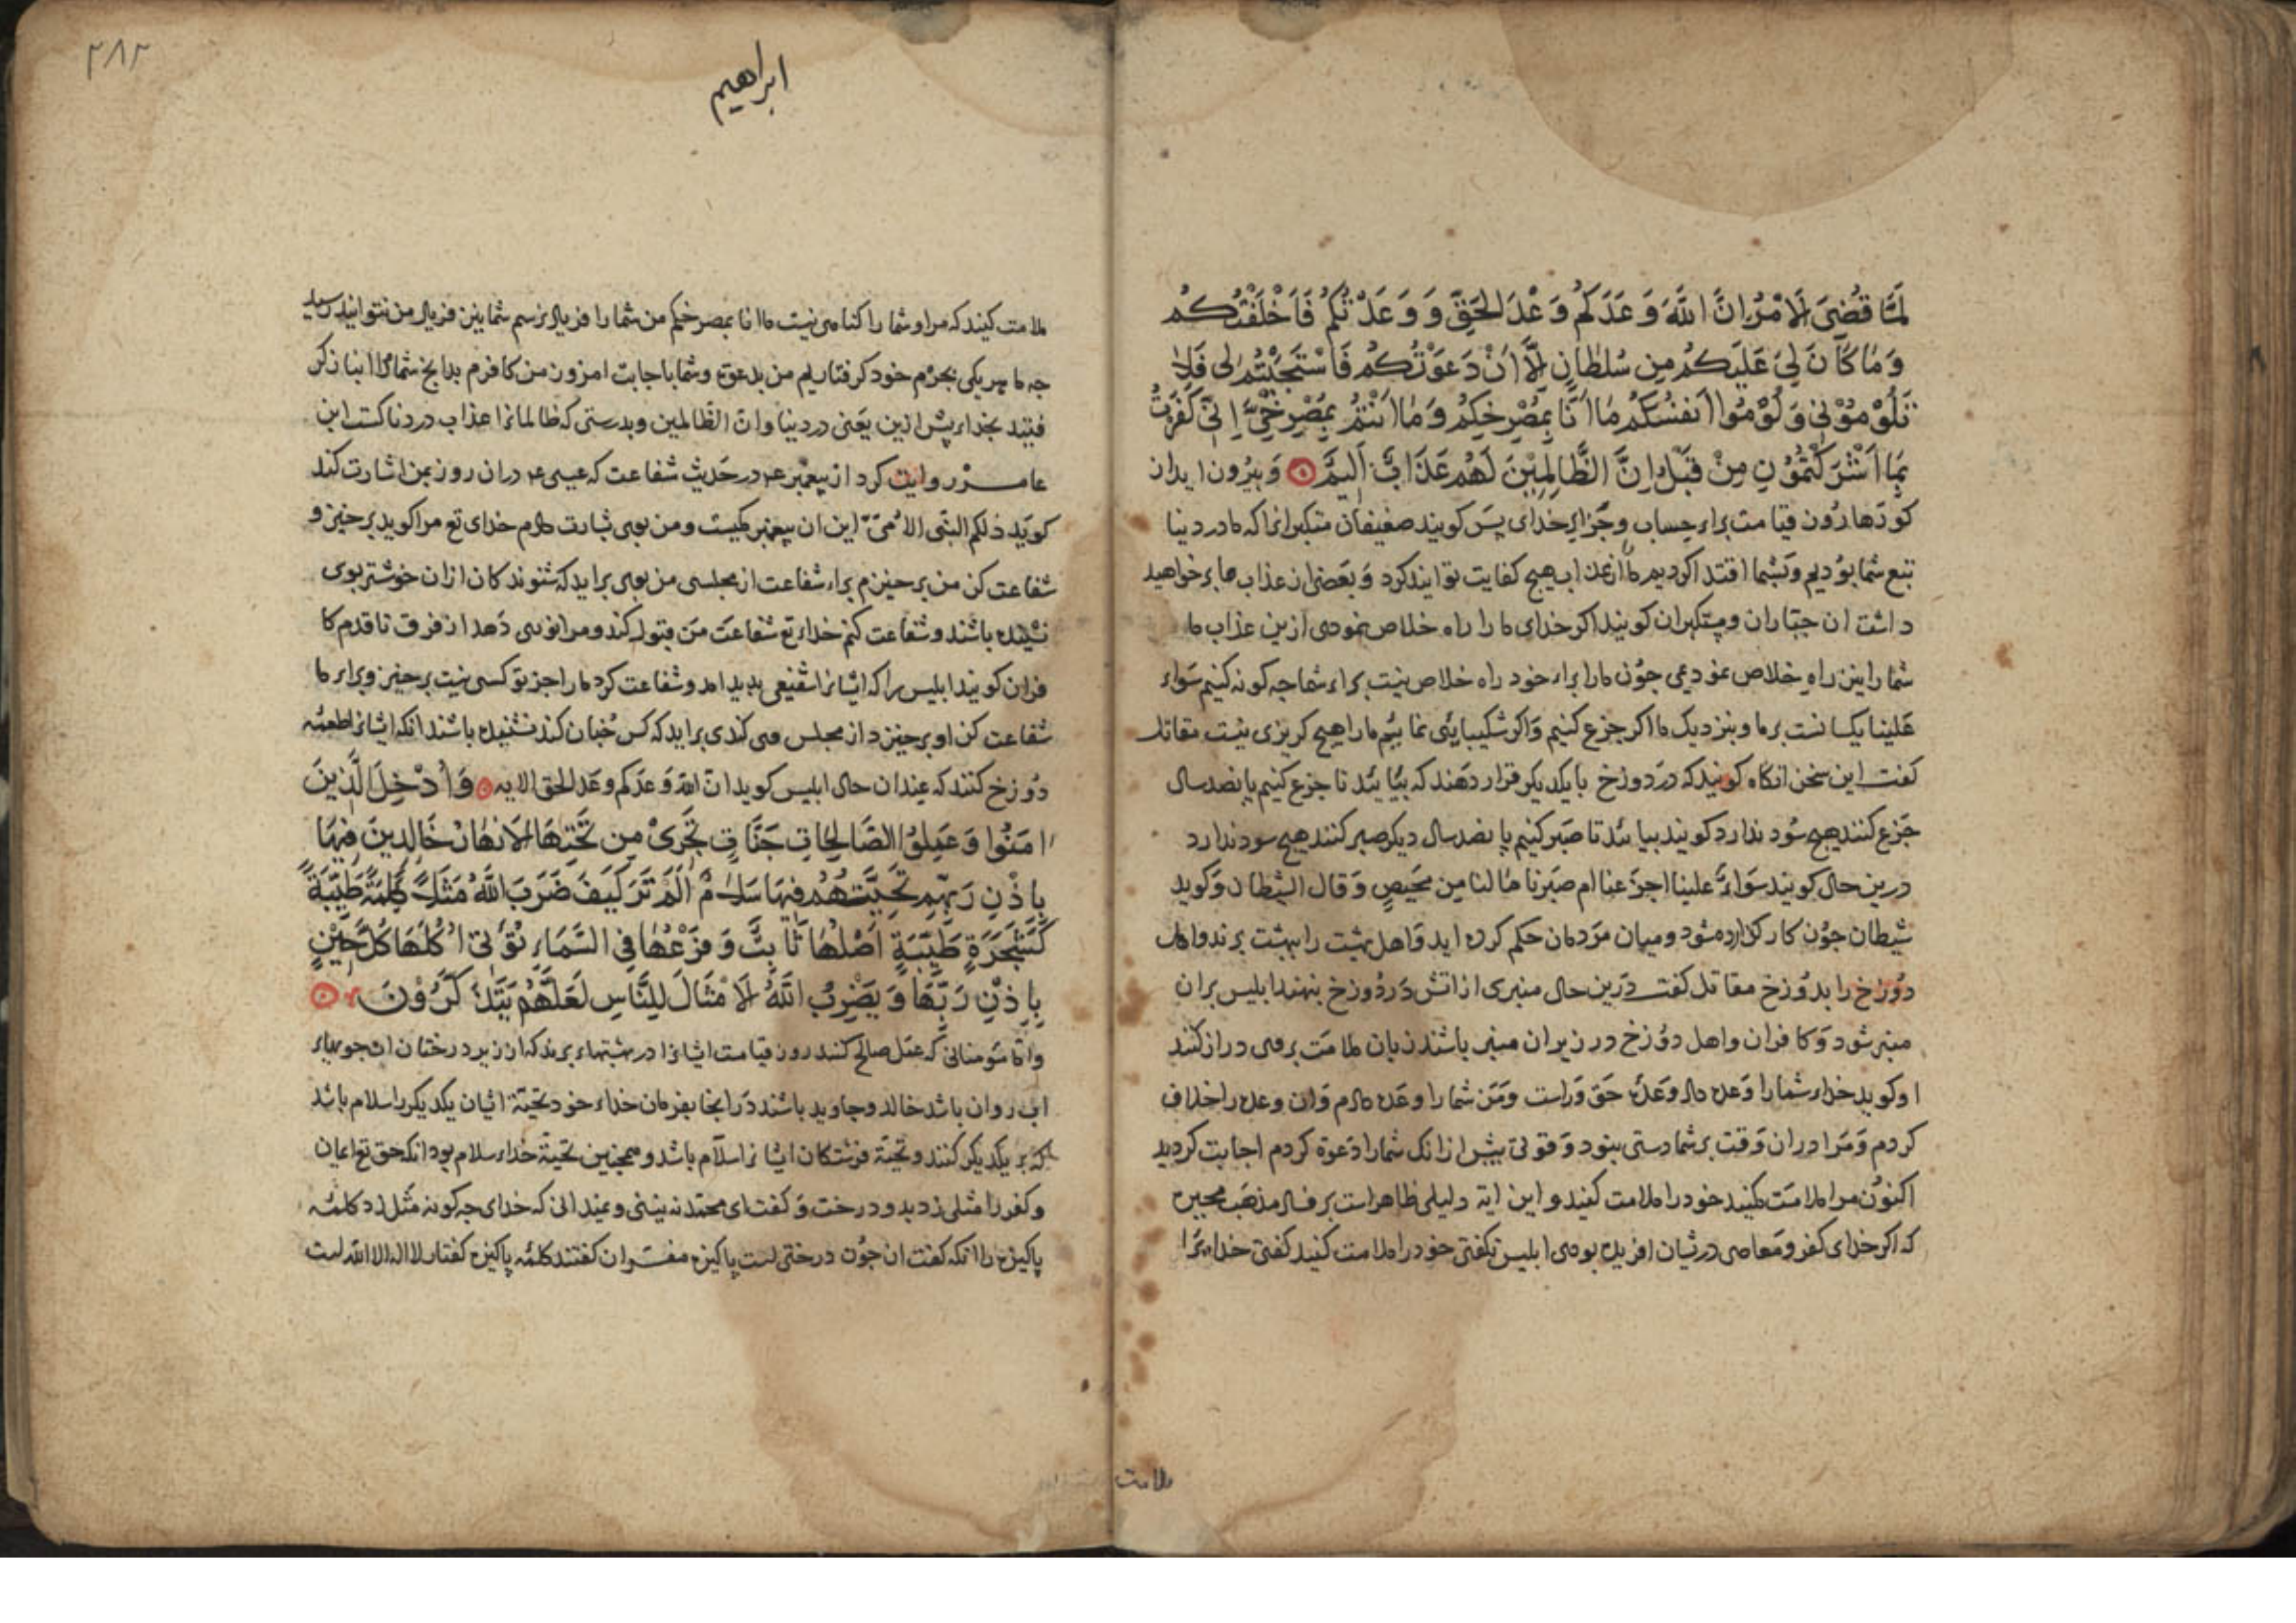 لَمَّا قُضِىَ لَامْرُ اِنَّ اللَّهَ وَعَدَكُم وَعْدَ الحَقِّ وَ وَعَدْتُكُم فَاَخْلَفْتُكُم
وَمَا كَانَ لِىَ عَلَيكُم مِن سُلطَانٍ اِلَّا اَنْ دَعَوْتُكُم فَاسْتَجَبْتُم لى فَلا
تَلُوْمُوْنِى وَلُوْمُوا اَنفُسَكُم مَا اَنَا بِمُصْرِخِكُم وَمَا اَنْتُمْ بِمُصْرِخِىَّ اِنِّى كَفَرْتُ
بِمَا اَشْرَكْتُمُوْنِ مِنْ قَبْلُ اِنَّ الظَّالِمِيْنَ لَهُم عَذَابٌ اَلِيمٌ وَبيرُون ايد از
كورها رون قيامت براء حساب وجزاى خداى پس كويند ضعيفان متكبرانرا كه ما در دنيا
تبع شما بوديم وبشما اقتدا كرديم ما را از عذاب هيچ كفايت توانيد كرد وبعضى از عذاب ما بر خواهيد
داشت ان جباران ومتكبران كويند اكر خداى ما را راه خلاص نمودى ازين عذاب ما
شما را نيز راه خلاص نمودمى چون ما را براء خود راه خلاص نيست براء شما چه كونه كنيم سواء
علينا يكسانست بر ما وبنزديك ما اكر جزع كنيم واكر شكيبايئى نماييم ما را هيچ كريزى نيست مقاتل
كفت اين سخن انكاه كويند كه در دوزخ با يكديكر قرار دهند كه بيائيد تا جزع كنيم پانصد سال
جزع كنند هيچ سود ندارد كويند بيائيد تا صبر كنيم پانصد سال ديكر صبر كنند هيچ سود ندارد
درين حال كويند سواء علينا اجزعنا ام صبرنا ما لنا من محيص وقال الشيطان وكويد
شيطان چون كار كزارده شود وميان مردمان حكم كرده ايد واهل بهشت را ببهشت برند واهل
دوزخ را بدوزخ مقاتل كفت درين حال منبرى از اتش در دوزخ بنهند ابليس بران
منبر شود وكافران واهل دوزخ در زير ان منبر باشند زبان ملامت بر وى دراز كنند
او كويد خداء شما را وعده داد وعده حق وراست ومن شما را وعده دادم وان وعده را خلاف
كردم ومرا دران وقت بر شما دستى نبود وقوتى بيش ازانك شما را دعوة كردم اجابت كرديد
اكنون مرا ملامت مكنيد خود را ملامت كنيد واين ايه دليلى ظاهر است بر فساد مذهب مجبره
كه اكر خداى كفر ومعاصى درشان افريده بودى ابليس نكفتى خود را ملامت كنيد كفتى خداء را
ملامت
٢٨٢
ابراهيم
ملامت كنيد كه مرا وشما را كناهى نيست ما انا بمصرخكم من شما را فرياد نرسم شما نيز فرياد من نتوانيد رسيد
چه ما هر يكى بجرم خود كرفتاريم من بدعوة وشما باجابت امروز من كافرم بدانچ شما مرا انباز كر
فتيد بخداء پيش ازين يعنى در دنيا وان الظالمين وبدرستى كه ظالمانرا عذاب دردناكست ابن
عامر روايت كرد از پيغمبر ع م در حديث شفاعت كه عيسى ع م دران روز بمن اشارت كند
كويد ذلكم النبى الامى اين ان پيغمبر كيست ومن بوى بشارت دادم خداى تع مرا كويد برخيز و
شفاعت كن من برخيزم براء شفاعت از مجلسى من بوى برايد كه شنوندكان ازان خوشتر بوى
نشنيده باشند وشفاعت كنم خداء تع شفاعت من قبول كند ومرا نورى دهد از فرق تا قدم كا
فران كويند ابليس را كه ايشانرا شفيعى پديد امد وشفاعت كرد ما را جز تو كسى نيست برخيز وبراء ما
شفاعت كن او برخيزد از مجلس وى كندى برايد كه كس چنان كند نشنيده باشند انكه ايشانرا طعمه
دوزخ كنند كه عند ان حال ابليس كويد ان الله وعدكم وعد الحق الايه وَاُدْخِلَ الَّذِينَ
امَنُوا وَعَمِلُوا الصَّالِحَاتِ جَنَّاتٍ تَجْرِىْ مِن تَحْتِهَا الاَنهَارُ خَالِدِينَ فِيهَا
بِاِذْنِ رَبِّهِمِ تَحِيَّتُهُمْ فِيهَا سَلَامٌ اَلَمْ تَرَ كَيفَ ضَرَبَ اللَّهُ مَثَلاً كَلِمَةً طَيِّبَةً
كَشَجَرَةٍ طَيِّبَةٍ اَصْلُهَا ثَابِتٌ وَفَرْعُهَا فِى السَّمَاءِ تُؤْتِى اُكُلَهَا كُلَّ حِيْنٍ
بِاِذْنِ رَبِّهَا وَيَضْرِبُ اللَّهُ الَامْثَالَ لِلنَّاسِ لَعَلَّهُمْ يَتَذَكَّرُوْنَ
واما مؤمنانى كه عمل صالح كنند روز قيامت ايشانرا در بهشتهاء برند كه از زير درختان ان جويهاء
اب روان باشد خالد وجاويد باشند در انجا بفرمان خداء خود تحيتة ايشان يكديكر را سلام باشد
كه بر يكديكر كنند وتحية فرشتكان ايشانرا سلام باشد وهمچنين تحية خداء سلام بود انكه حق تع ايمان
وكفر را مثلى زد بدو درخت وكفت اى محمد نه بينى ونميدانى كه خداى چه كونه مثل زد كلمه
پاكيزه را انكه كفت ان چون درختى است پاكيزه مفسران كفتند كلمه پاكيزه كفتار لا اله الا الله است